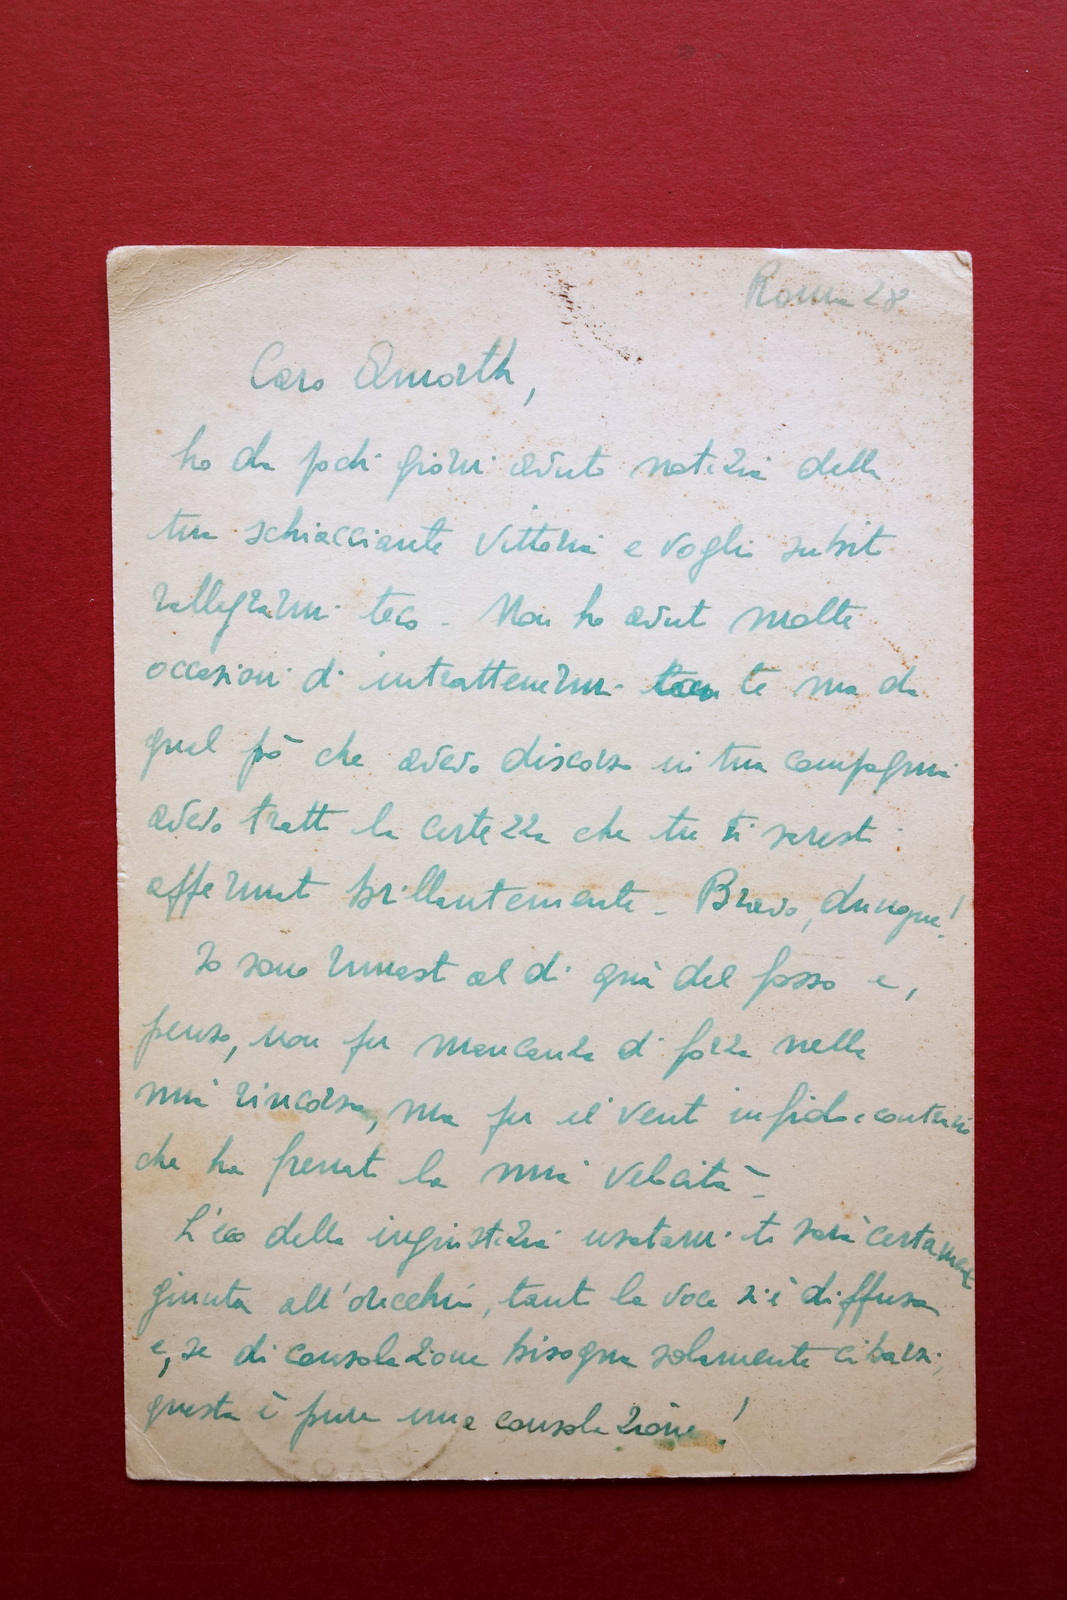 Roma 28
Caro Amorth,
ho da pochi giorni avuto notizia della
tua schiacciante vittoria e voglio subito
rallegrarmi teco. Non ho avuto molte
occasioni di intrattenermi con te ma da
quel pò che avevo discorso in tua compagnia
avevo tratto la certezza che tu ti saresti
affermato brillantemente. Bravo, dunque!
Io sono rimasto al di quà del fosso e,
penso, non fu mancanza di forza nella
mia rincorsa, ma fu il vento infido e contrario
che ha frenato la mia velocità.
L'eco della ingiustizia usatami ti sarà certamente
giunta all'orecchio, tanto la voce si è diffusa
e, se di consolazione bisogna solamente cibarsi,
questa è pure una consolazione!